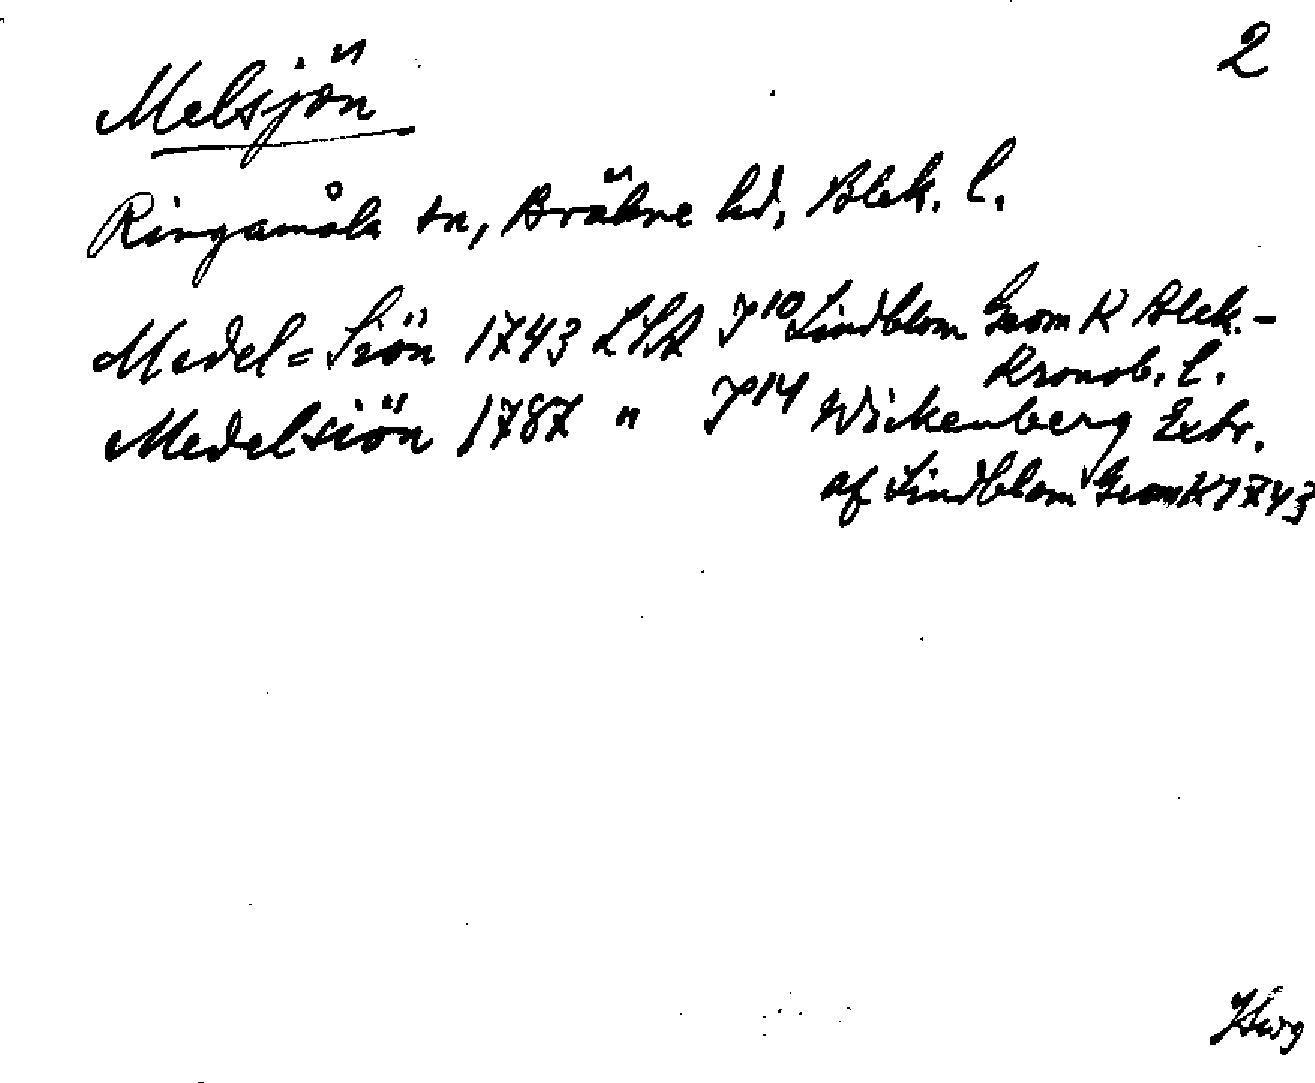 2
Melsjön
Ringamåla sn, Bräkne hd, Blek. l.
Medel=Siön 1743 LSA J10 Lindblom GeomK Blek.-
Kronob. l.
Medelsiön 1787 " J14 Wickenberg Extr.
af Lindblom GeomK 1743